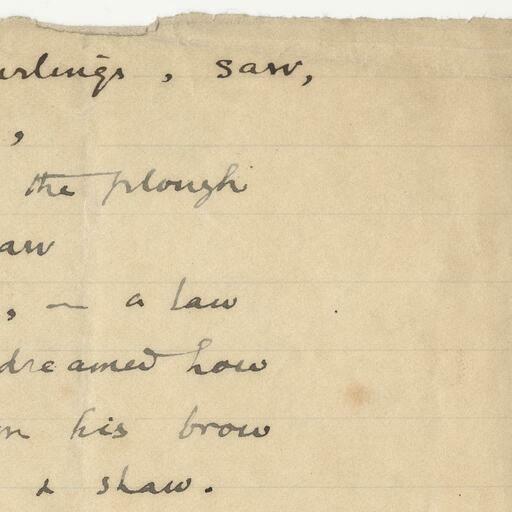 saw,
,
the plough
aw
, — a law
dreamed how
his brow
& shaw.